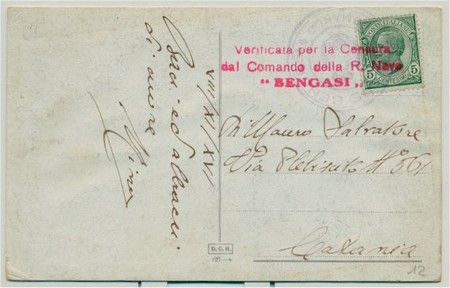 Verificata per la Censura
dal Comando della R. Nave
" BENGASI "
POSTE ITALIANE
5 5
VIII/XI/XVI
Baci ed abbracci
di cuore
Nino
Di Mauro Salvatore
Via Plebiscito N° 861
Catania
12
D.C.R.